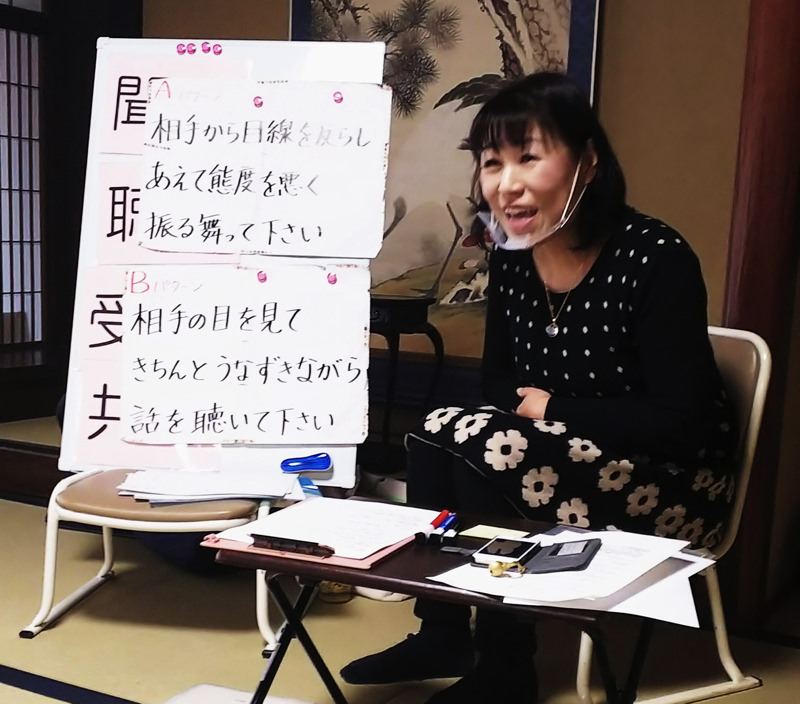 聞
聴
受
共
Aパターン
相手から目線を反らし
あえて態度を悪く
振る舞って下さい
Bパターン
相手の目を見て
きちんとうなずきながら
話を聴いて下さい